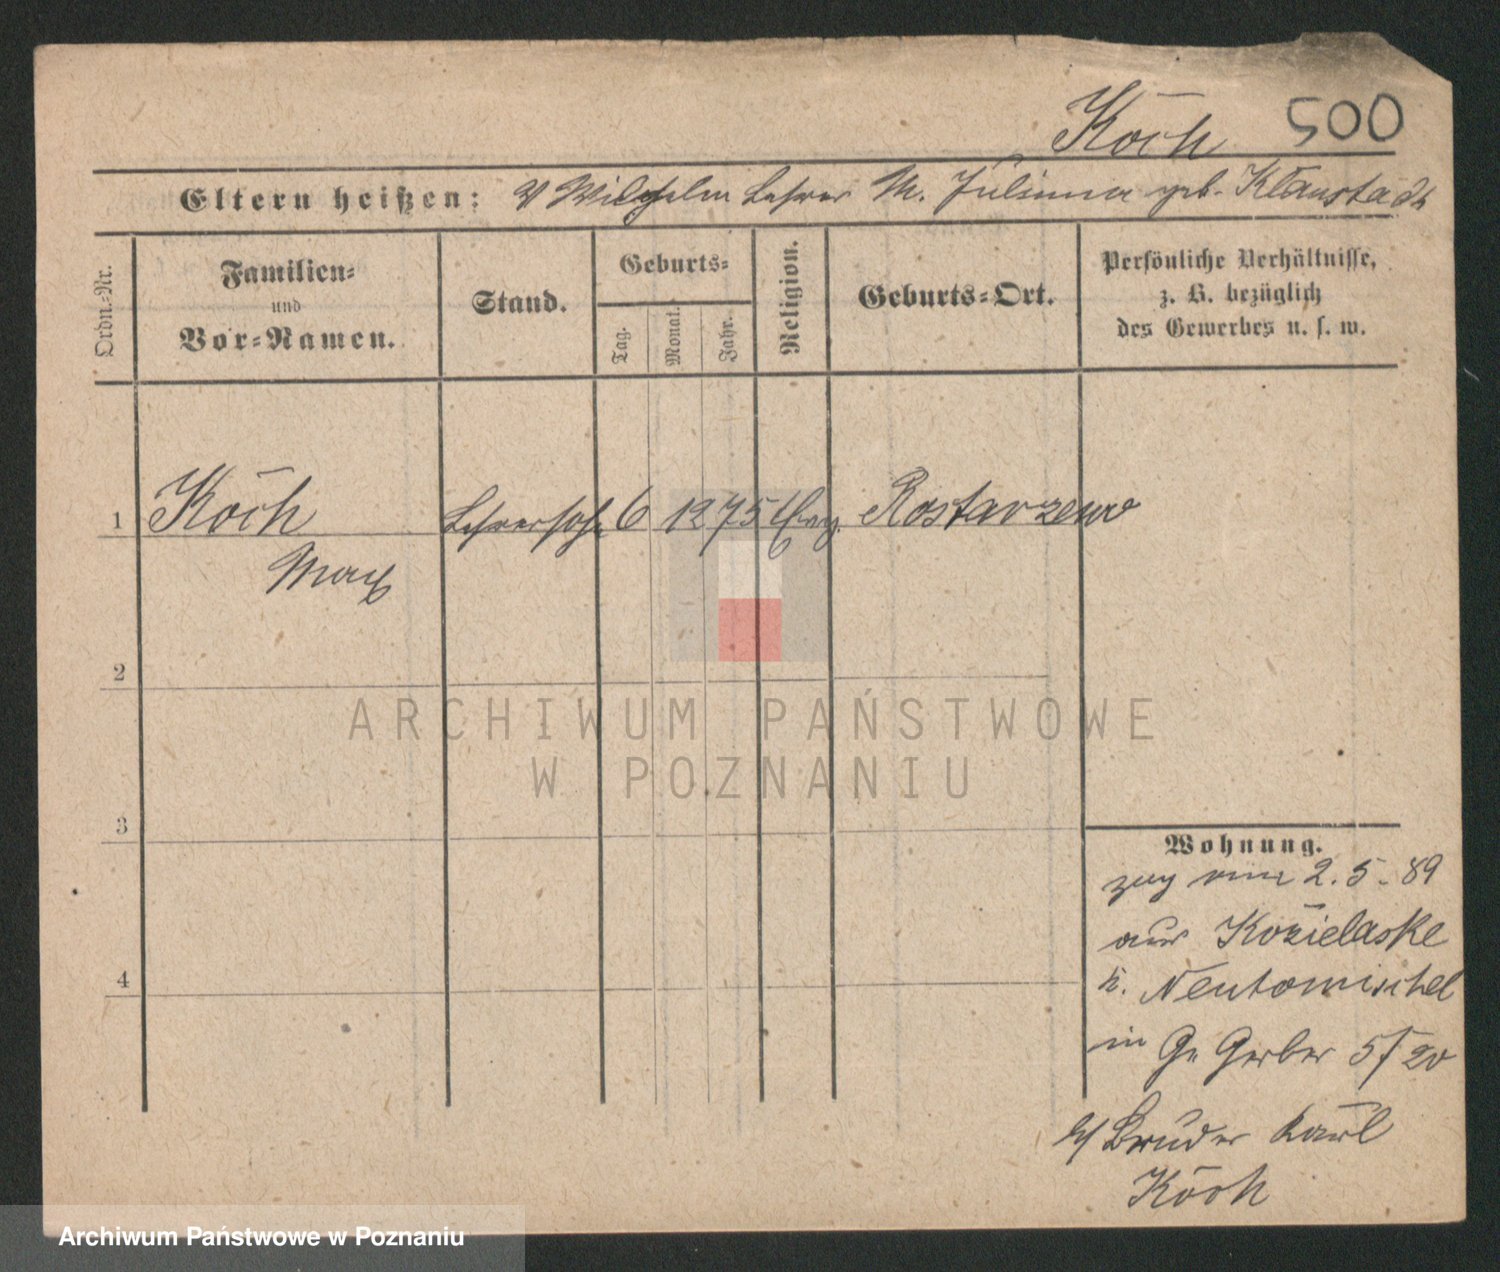 Koch 500
Eltern heißen: V Wilhelm Lehrer M. Julianna geb. Klaustadt
Ordn.-Nr.
Familien-
und
Vor-Namen.
Stand.
Geburts-
Tag.
Monat.
Jahr.
Religion.
Geburts-Ort.
Persönliche Verhältnisse,
z. B. bezüglich
des Gewerbes u. s. w.
1 Koch Lehrersohn 6 12 75 Evg. Rostarzewo
Max
2
ARCHIWUM PAŃSTWOWE
W POZNANIU
3
Wohnung.
zug vom 2. 5. 89
aus Kozielaske
k. Neutomischel
4
in Gr Gerber 5/20
b/ Bruder Karl
Koch
Archiwum Państwowe w Poznaniu